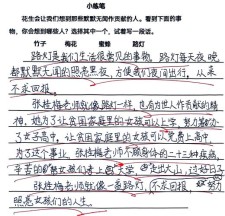 小练笔
花生会让我们想到那些默默无闻作贡献的人。看到下面的事
物，你会想到哪些人？选择其中一个，试着写一段话。
竹子 梅花 蜜蜂 路灯
路灯是我们生活很常见的事物，路灯每天夜晚
都默默无闻的照亮黑夜，方便我们夜间出行，从来
不求回报。
张桂梅老师就像路灯一样，也有为世人作贡献的精
神，她为了让贫困家庭的女孩可以上学，努力
了女子高中，让贫困家庭的女孩可以免费上高中，
为了这个事业，张桂梅老师不顾身体的二十三种疾病，
辛苦的 女孩们考上 大学，走出大山，过好日子
张桂梅老师就像一盏路灯，不求回报， 努力
照亮女孩们的人生。